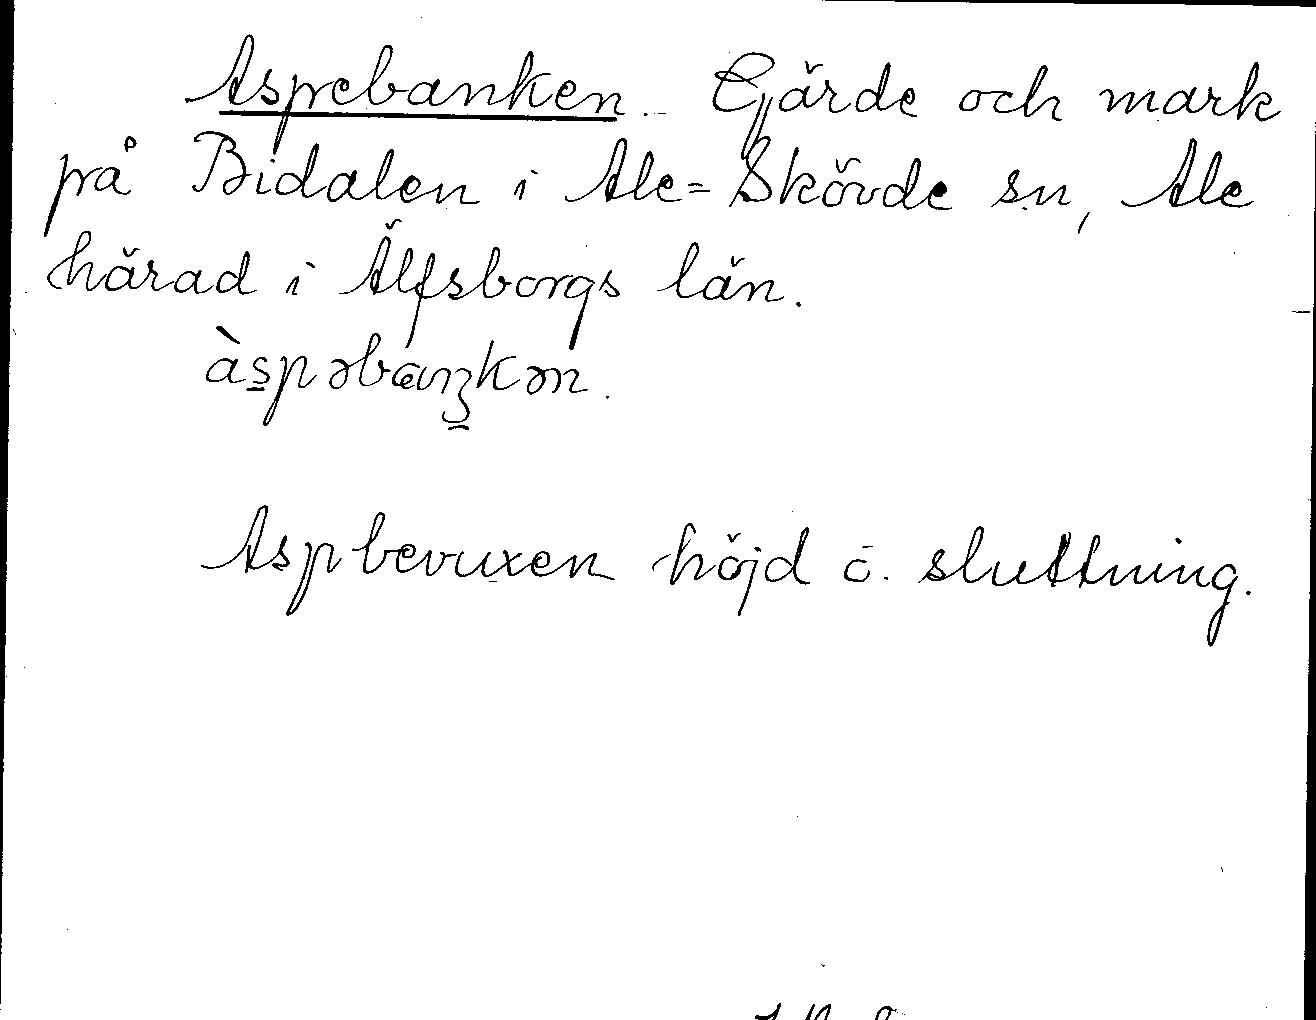 Aspebanken. Gärde och mark
på Bidalen i Ale=Skövde sn, Ale
härad i Älfsborgs län.
àspəbaŋkən.
Aspbevuxen höjd o. sluttning.